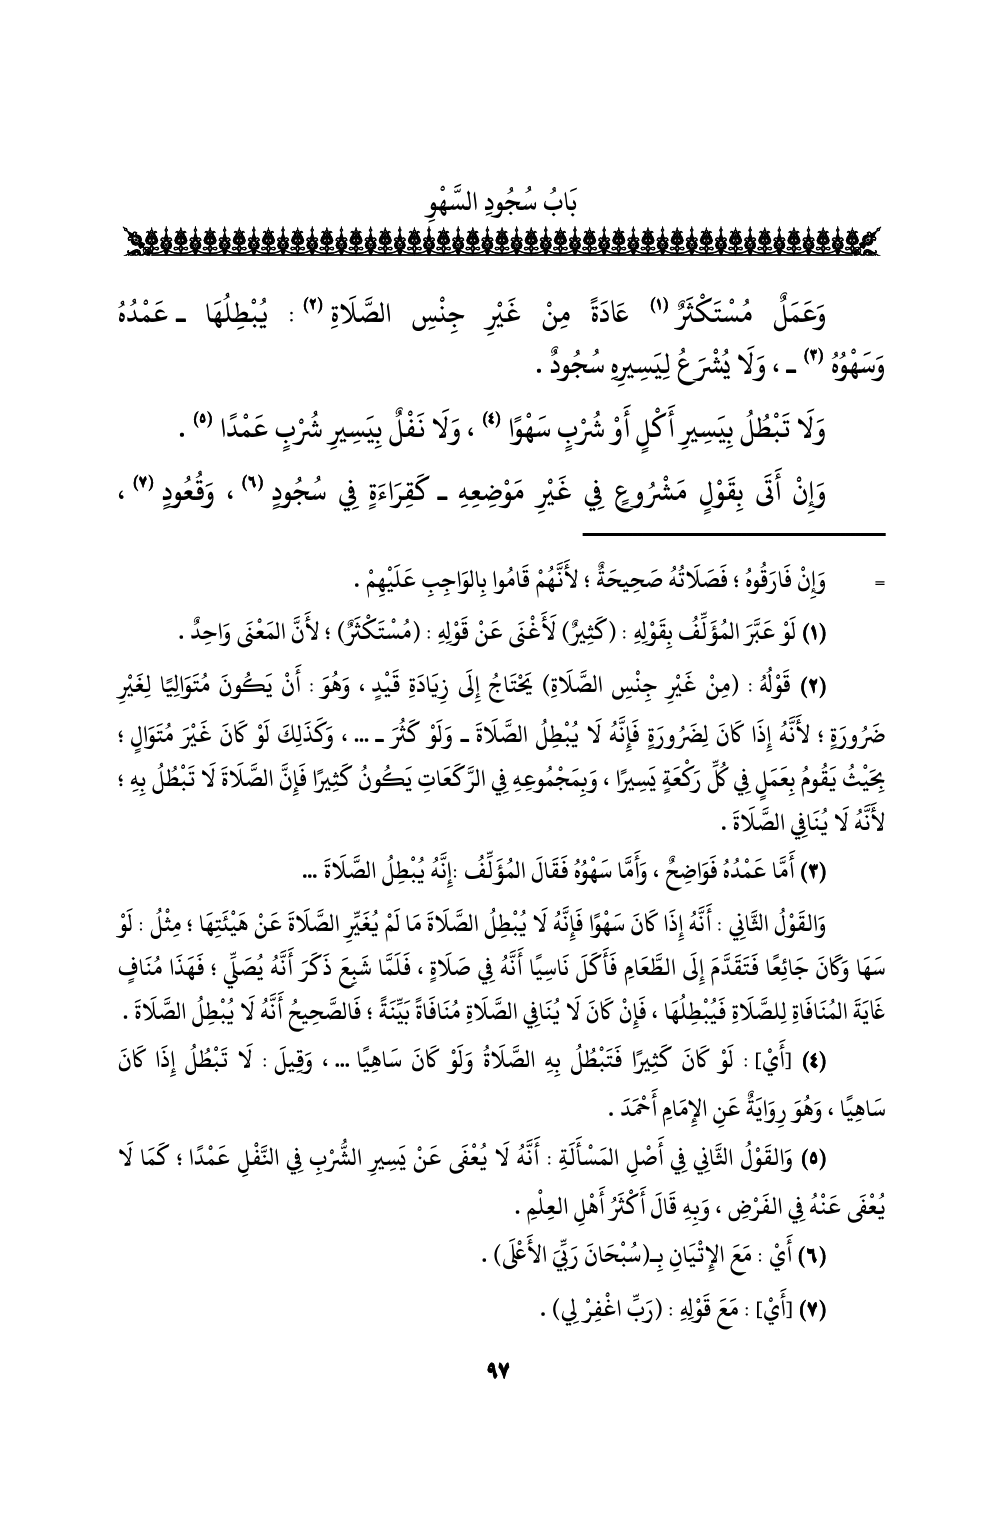 بَابُ سُجُودِ السَّهْوِ
وَعَمَلٌ مُسْتَكْثَرٌ (١) عَادَةً مِنْ غَيْرِ جِنْسِ الصَّلَاةِ (٢) : يُبْطِلُهَا ـ عَمْدُهُ
وَسَهْوُهُ (٣) ـ ، وَلَا يُشْرَعُ لِيَسِيرِهِ سُجُودٌ .
وَلَا تَبْطُلُ بِيَسِيرِ أَكْلٍ أَوْ شُرْبٍ سَهْوًا (٤) ، وَلَا نَفْلٌ بِيَسِيرِ شُرْبٍ عَمْدًا (٥) .
وَإِنْ أَتَى بِقَوْلٍ مَشْرُوعٍ فِي غَيْرِ مَوْضِعِهِ ـ كَقِرَاءَةٍ فِي سُجُودٍ (٦) ، وَقُعُودٍ (٧) ،
= وَإِنْ فَارَقُوهُ ؛ فَصَلَاتُهُ صَحِيحَةٌ ؛ لأَنَّهُمْ قَامُوا بِالوَاجِبِ عَلَيْهِمْ .
(١) لَوْ عَبَّرَ المُؤَلِّفُ بِقَوْلِهِ : (كَثِيرٌ) لَأَغْنَى عَنْ قَوْلِهِ : (مُسْتَكْثَرٌ) ؛ لأَنَّ المَعْنَى وَاحِدٌ .
(٢) قَوْلُهُ : (مِنْ غَيْرِ جِنْسِ الصَّلَاةِ) يَحْتَاجُ إِلَى زِيَادَةِ قَيْدٍ ، وَهُوَ : أَنْ يَكُونَ مُتَوَالِيًا لِغَيْرِ
ضَرُورَةٍ ؛ لأَنَّهُ إِذَا كَانَ لِضَرُورَةٍ فَإِنَّهُ لَا يُبْطِلُ الصَّلَاةَ ـ وَلَوْ كَثُرَ ـ ... ، وَكَذَلِكَ لَوْ كَانَ غَيْرَ مُتَوَالٍ ؛
بِحَيْثُ يَقُومُ بِعَمَلٍ فِي كُلِّ رَكْعَةٍ يَسِيرًا ، وَبِمَجْمُوعِهِ فِي الرَّكَعَاتِ يَكُونُ كَثِيرًا فَإِنَّ الصَّلَاةَ لَا تَبْطُلُ بِهِ ؛
لأَنَّهُ لَا يُنَافِي الصَّلَاةَ .
(٣) أَمَّا عَمْدُهُ فَوَاضِحٌ ، وَأَمَّا سَهْوُهُ فَقَالَ المُؤَلِّفُ :إِنَّهُ يُبْطِلُ الصَّلَاةَ ...
وَالقَوْلُ الثَّانِي : أَنَّهُ إِذَا كَانَ سَهْوًا فَإِنَّهُ لَا يُبْطِلُ الصَّلَاةَ مَا لَمْ يُغَيِّرِ الصَّلَاةَ عَنْ هَيْئَتِهَا ؛ مِثْلُ : لَوْ
سَهَا وَكَانَ جَائِعًا فَتَقَدَّمَ إِلَى الطَّعَامِ فَأَكَلَ نَاسِيًا أَنَّهُ فِي صَلَاةٍ ، فَلَمَّا شَبِعَ ذَكَرَ أَنَّهُ يُصَلِّي ؛ فَهَذَا مُنَافٍ
غَايَةَ المُنَافَاةِ لِلصَّلَاةِ فَيُبْطِلُهَا ، فَإِنْ كَانَ لَا يُنَافِي الصَّلَاةِ مُنَافَاةً بَيِّنَةً ؛ فَالصَّحِيحُ أَنَّهُ لَا يُبْطِلُ الصَّلَاةَ .
(٤) [أَيْ] : لَوْ كَانَ كَثِيرًا فَتَبْطُلُ بِهِ الصَّلَاةُ وَلَوْ كَانَ سَاهِيًا ... ، وَقِيلَ : لَا تَبْطُلُ إِذَا كَانَ
سَاهِيًا ، وَهُوَ رِوَايَةٌ عَنِ الإِمَامِ أَحْمَدَ .
(٥) وَالقَوْلُ الثَّانِي فِي أَصْلِ المَسْأَلَةِ : أَنَّهُ لَا يُعْفَى عَنْ يَسِيرِ الشُّرْبِ فِي النَّفْلِ عَمْدًا ؛ كَمَا لَا
يُعْفَى عَنْهُ فِي الفَرْضِ ، وَبِهِ قَالَ أَكْثَرُ أَهْلِ العِلْمِ .
(٦) أَيْ : مَعَ الإِتْيَانِ بِـ(سُبْحَانَ رَبِّيَ الأَعْلَى) .
(٧) [أَيْ] : مَعَ قَوْلِهِ : (رَبِّ اغْفِرْ لِي) .
٩٧